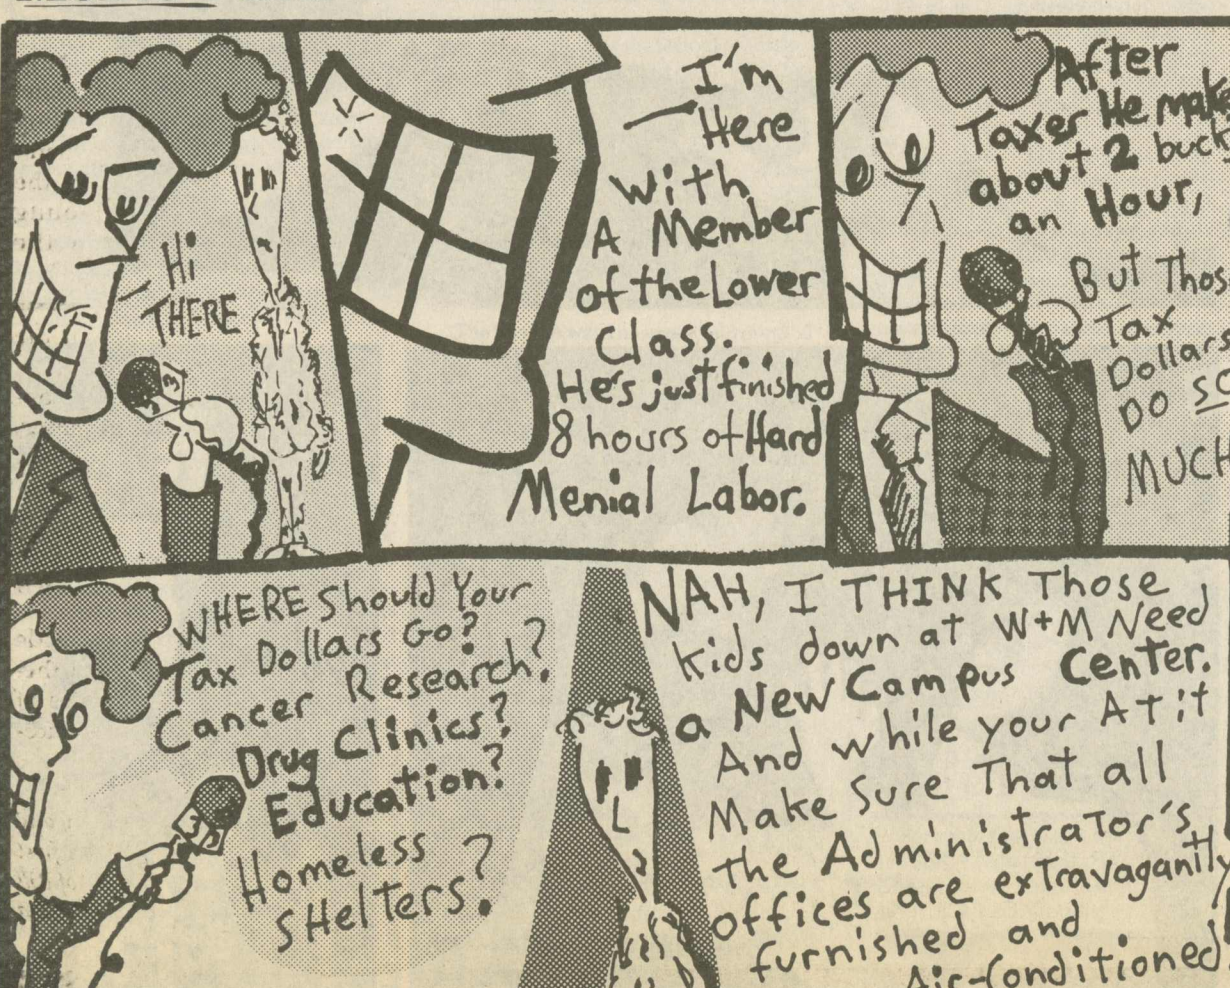 Hi
THERE
3
I'm
Here
with
A Member
of the Lower
Class.
He's just finished
8 hours of Hard
Menial Labor.
After
Taxes He make
about 2 buck
an Hour,
But Thos
Tax
Dollars
DO SO
MUCH
WHERE Should Your
Tax Dollars Go?
Cancer Research?
Drug Clinics?
Education?
Homeless
SHelTers?
3
NAH, I THINK Those
kids down at W+M Need
a New Campus Center.
And while your At it
Make Sure That all
the AdministraTor's
offices are exTravagantly
furnished and
Air-Conditioned!